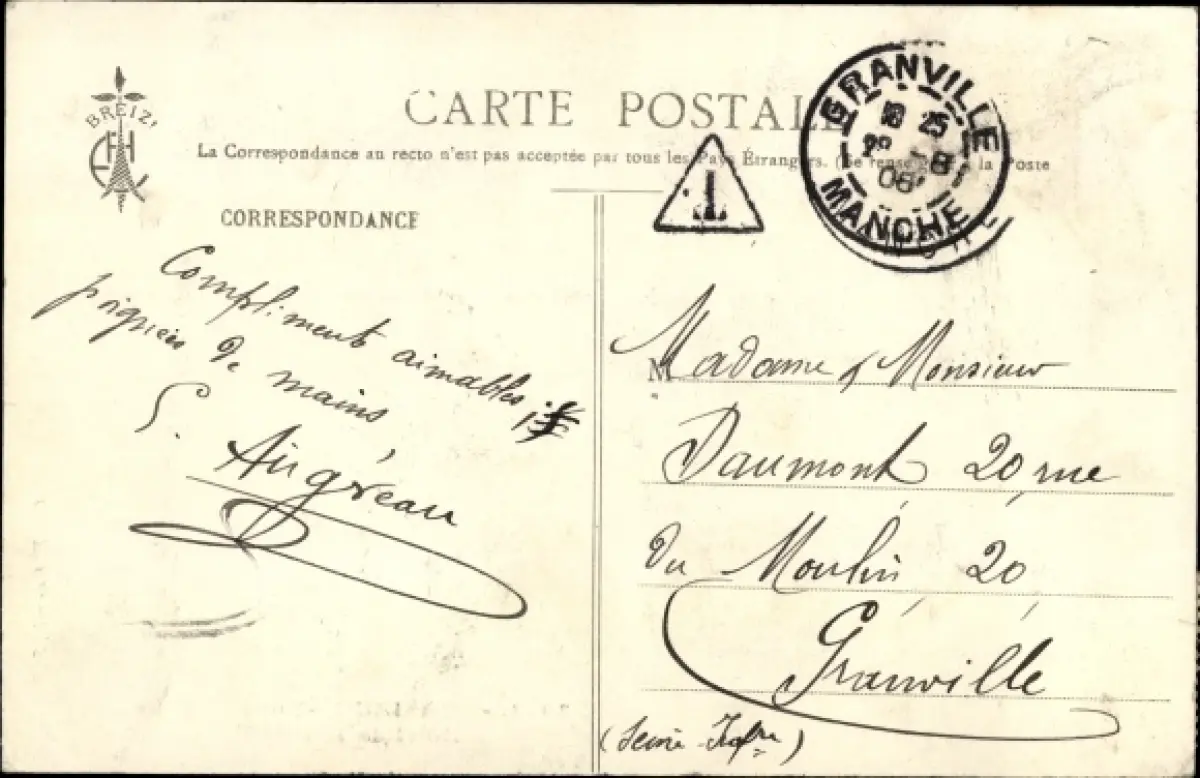 BREIZ
CARTE POSTALE
La Correspondance au recto n'est pas acceptée par tous les Pays Étrangers. (Se renseigner à la Poste
CORRESPONDANCE
GRANVILLE
18 25
-8
06
MANCHE
Compliments aimables,
poignées de mains
S. Augéreau
M
Madame & Monsieur
Daumont 20 rue
du Moulin, 20
Granville
(Seine